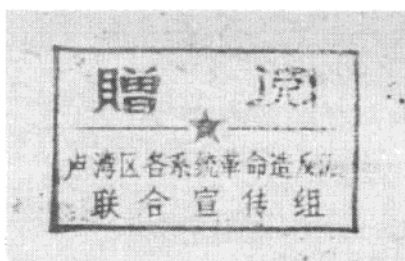 贈 阅
卢湾区各系统革命造反派
联合宣传组